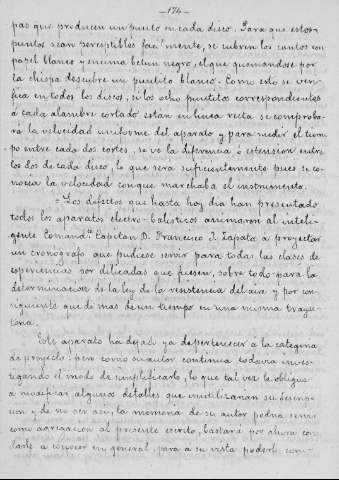 -174-
pas que producen un punto en cada disco. Para que estos
puntos sean perceptibles facilmente, se cubren los cantos con
papel blanco y encima betun negro, el que quemandose por
la chispa descubre un puntito blanco. Como esto se veri-
fica en todos los discos, si los ocho puntitos correspondientes
á cada alambre cortado están en linea recta se comproba-
rá la velocidad uniforme del aparato y para medir el tiem-
po entre cada dos cortes, se vé la diferencia ó estension entre
los dos de cada disco, lo que será suficientemente pues se co-
nocia la velocidad conque marchaba el instrumento.
= Los defectos que hasta hoy dia han presentado
todos los aparatos electro-balisticos animaron al inteli-
gente Comand.te Capitan D. Francisco J. Zapata á proyectar
un cronografo que pudiese servir para todas las clases de
esperiencias por delicadas que fuesen, sobre todo para la
determinacion de la ley de la resistencia del aire y por con-
siguiente que dé mas de un tiempo en una misma trayec-
toria.
Este aparato ha dejado ya de pertenecer á la categoria
de proyecto: pero como su autor continua todavia inves-
tigando el modo de simplificarlo, lo que tal vez le obligue
á modificar algunos detalles que inutilizarian su descrip-
cion y de no ser asi, la memoria de su autor podria servir
como agregacion al presente escrito, bastará por ahora con
darle á conocer en general, para á su vista poderle com-